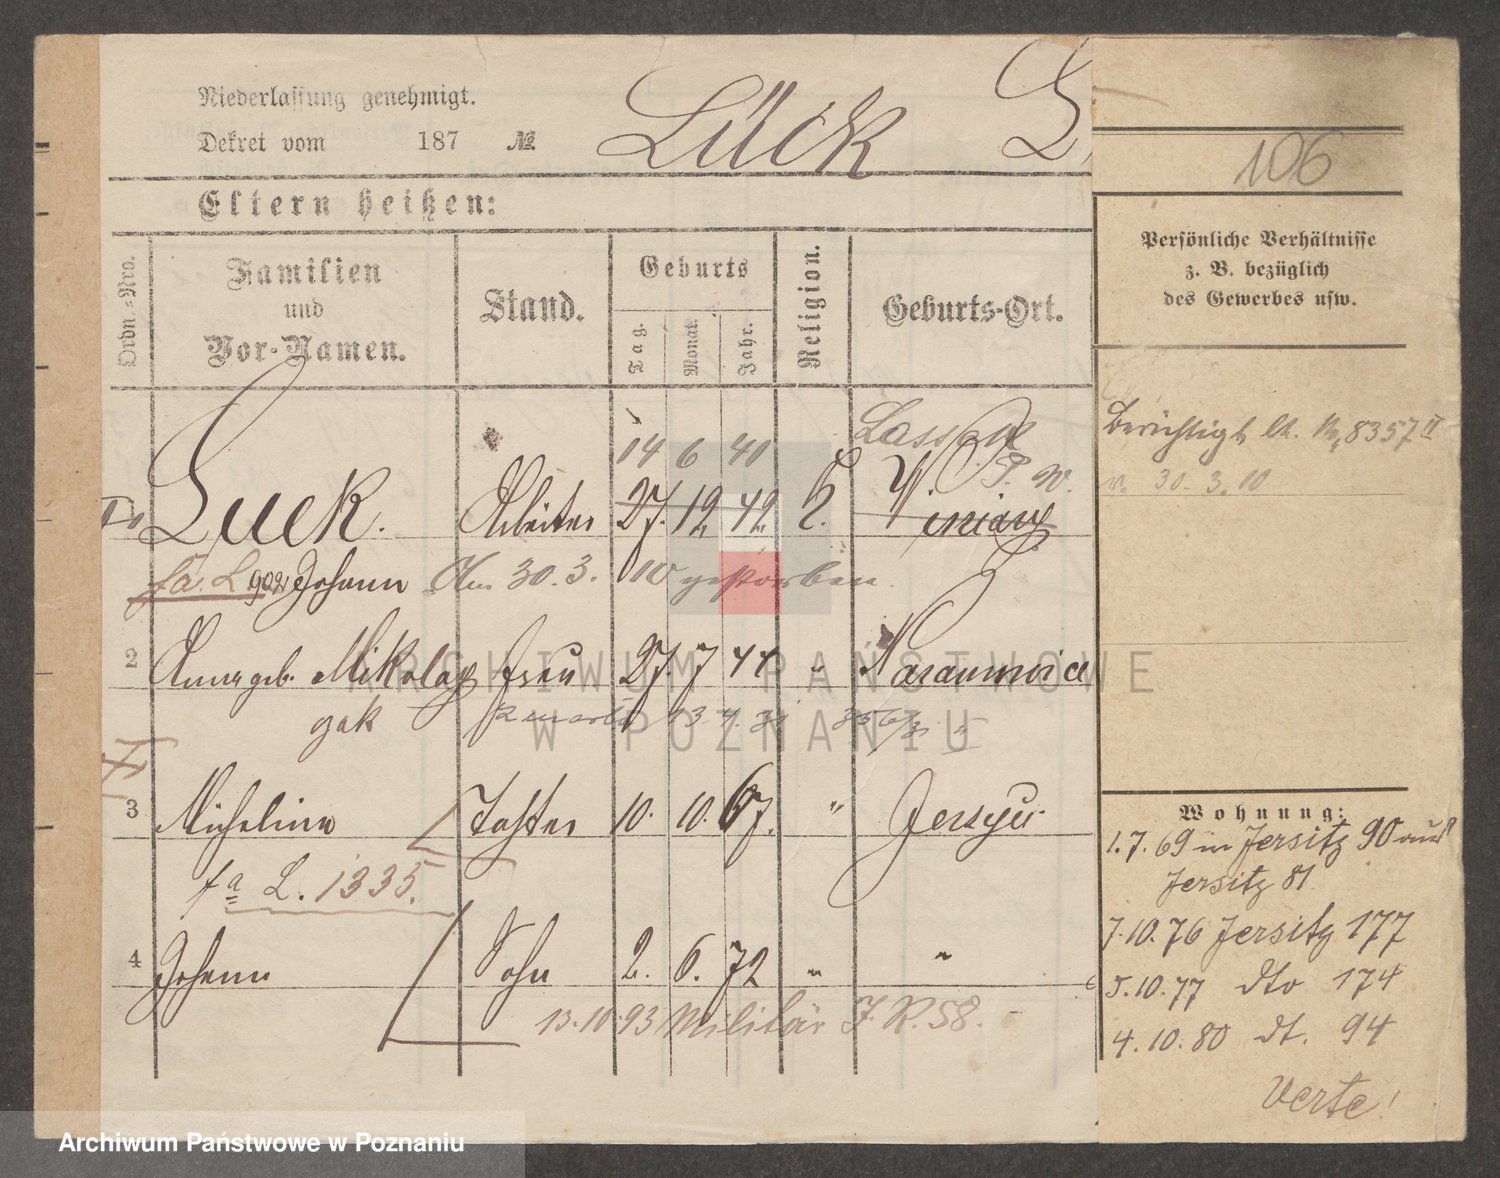 Niederlassung genehmigt.
Dekret vom 187 №
Lück
106
Eltern heißen:
Ordn.-Nro.
Familien und Vor-Namen.
Stand.
Geburts
Tag.
Monat.
Jahr.
Religion.
Geburts-Ort.
Persönliche Verhältnisse
z. B. bezüglich
des Gewerbes usw.
14 6 40
Luck. Arbeiter 27. 12. 42.
Berichtigt 8357 II
v. 30.3.10
fa. L Johann Am 30.3. 10 gestorben.
2 Anna geb. Mikolay Frau 27. 7 44 "
gak
3 Michelina Tochter 10. 10. 67. " Jerzyce
fa L. 1335.
4 Johann Sohn 2. 6. 72 " "
13.10.93 Militär J. R. 58.
Wohnung:
1.7.69 in Jersitz 90 aus
Jersitz 81
7.10.76 Jersitz 177
5.10.77 dto 174
4.10.80 dt. 94
Verte!
ARCHIWUM PAŃSTWOWE
W POZNANIU
Archiwum Państwowe w Poznaniu